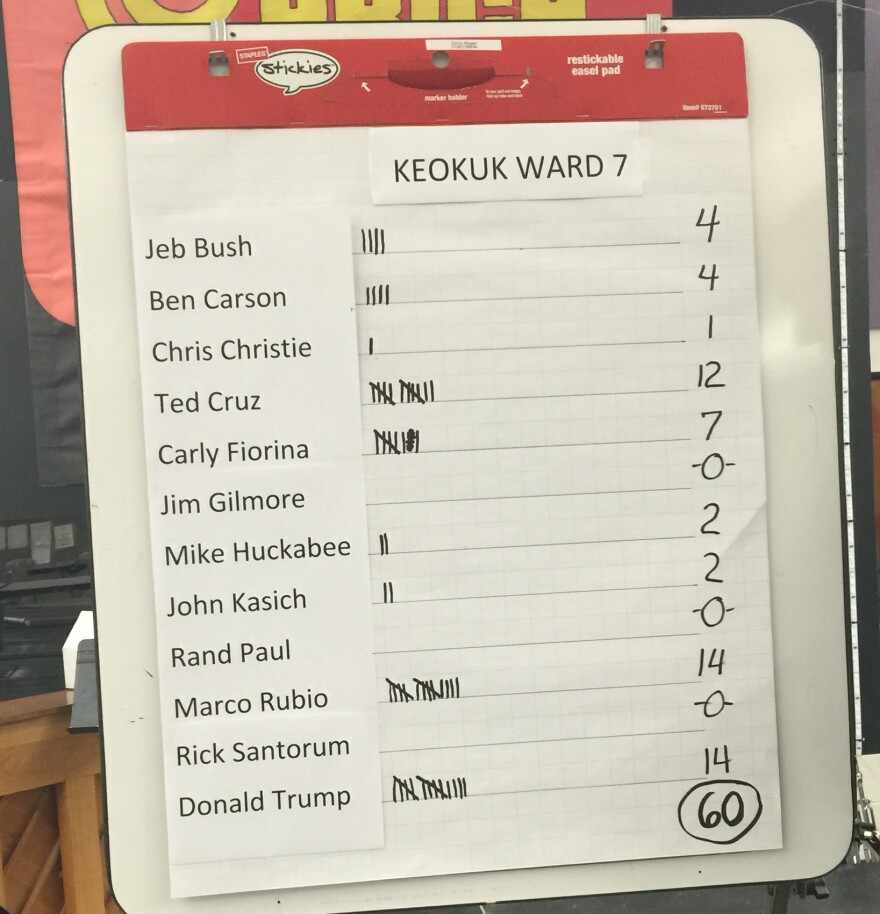 STAPLES
Stickies
marker holder
restickable
easel pad
Item# 572791
KEOKUK WARD 7
Jeb Bush 4
Ben Carson 4
Chris Christie 1
Ted Cruz 12
Carly Fiorina 7
Jim Gilmore -0-
Mike Huckabee 2
John Kasich 2
Rand Paul -0-
Marco Rubio 14
Rick Santorum -0-
Donald Trump 14
60